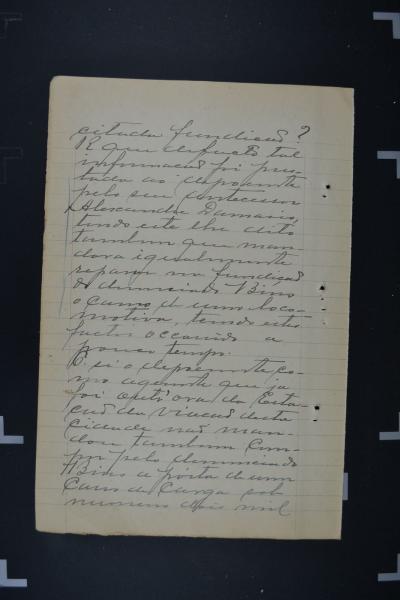 citada fundição?
R. que defacto tal
informação foi pres-
tada ao depoente
pelo seu antecessor
Alexandre Damasio,
tendo este lhe dito
tambem que man-
dara igualmente
reparar na fundição
do denunciado Bins
o cano de uma loco-
motiva, tendo estes
factos occorrido a
pouco tempo.
P. si o depoente co-
mo agente que já
foi outr'ora da Esta-
ção da viação desta
cidade não man-
dou tambem
por pelo denunciado
Bins a porta de um
Carro de Carga sob
numero dois mil